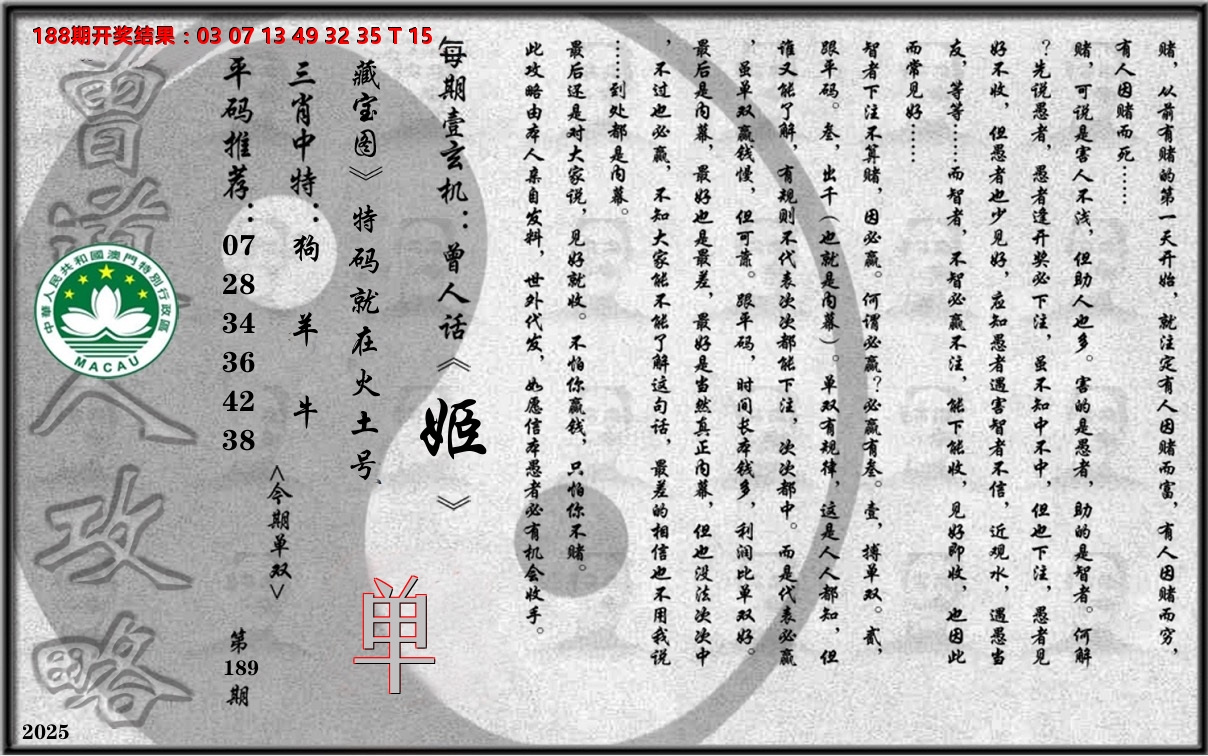 188期开奖结果：03 07 13 49 32 35 T 15
赌，从前有赌的第一天开始，就注定有人因赌而富，有人因赌而穷，
有人因赌而死……
赌，可说是害人不浅，但助人也多。害的是愚者，助的是智者。何解
？先说愚者，愚者逢开奖必下注，虽不知中不中，但也下注，愚者见
好不收，但愚者也少见好，应知愚者遇害智者不信，近观水，遇愚当
友，等等……而智者，不智必赢不注，能下能收，见好即收，也因此
而常见好……
智者下注不算赌，因必赢。何谓必赢？必赢有叁。壹，搏单双。贰，
跟平码。叁，出千（也就是内幕）。单双有规律，这是人人都知，但
谁又能了解，有规则不代表次次都能下注，次次都中。而是代表必赢
，虽单双赢钱慢，但可靠。跟平码，时间长本钱多，利润比单双好。
最后是内幕，最好也是最差，最好是当然真正内幕，但也没法次次中
，不过也必赢，不知大家能不能了解这句话，最差的相信也不用我说
……到处都是内幕。
最后还是对大家说，见好就收。不怕你赢钱，只怕你不赌。
此攻略由本人亲自发料，世外代发，如愿信本愚者必有机会收手。
每期壹玄机：曾人话《姬》
藏宝图》特码就在火土号
单
三肖中特：狗 羊 牛
<今期单双>
平码推荐：07 28 34 36 42 38
第189期
曾道人攻略
中華人民共和國澳門特別行政區
MACAU
2025